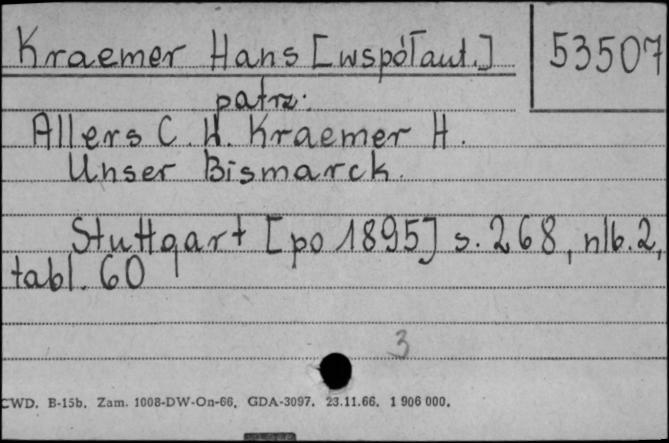 Kraemer Hans [współaut.] 53507
patrz:
Allers C. W. Kraemer H.
Unser Bismarck.
Stuttgart [po 1895] s. 268, nlb. 2,
tabl. 60
3
CWD. B-15b. Zam. 1008-DW-On-66. GDA-3097. 23.11.66. 1 906 000.